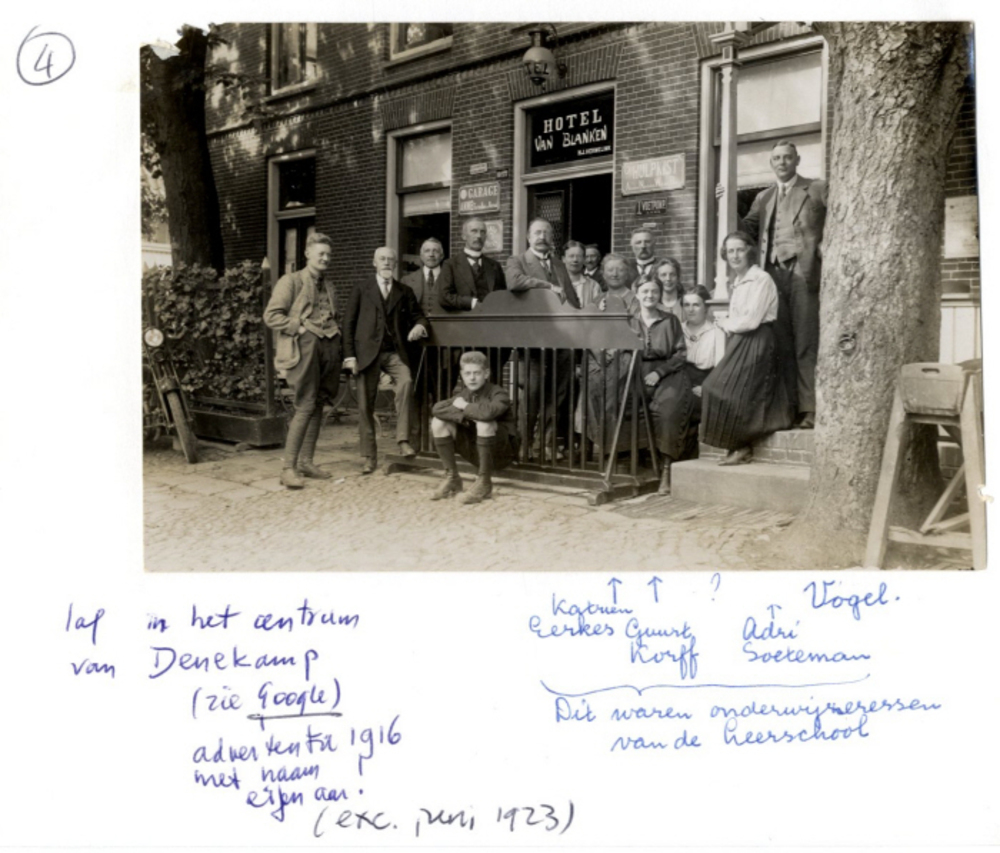 4
HOTEL
VAN BLANKEN
GARAGE
lag in het centrum
van Denekamp
(zie Google)
advertentie 1916
met naam
eigenaar!
(exc. juni 1923)
↑ ↑ ? Vogel.
Katrien ↑
Eerkes Guurt Adri
Korff Soeteman
Dit waren onderwijzeressen
van de Leerschool